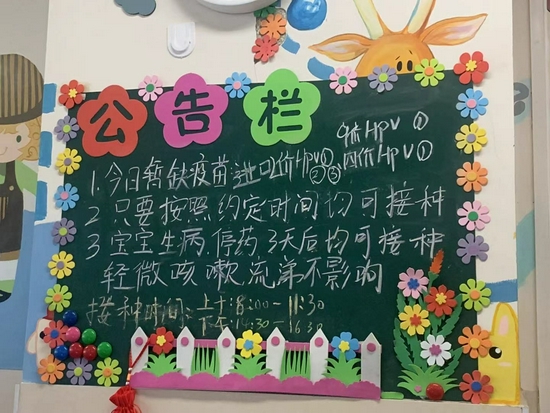 公告栏
九价HPV①
1.今日暂缺疫苗:进口二价HPV①②③ 四价HPV①
2 只要按照约定时间均可接种
3 宝宝生病,停药3天后均可接种
轻微咳嗽流涕不影响
接种时间:上午:8:00-11:30
下午: :30-16:30